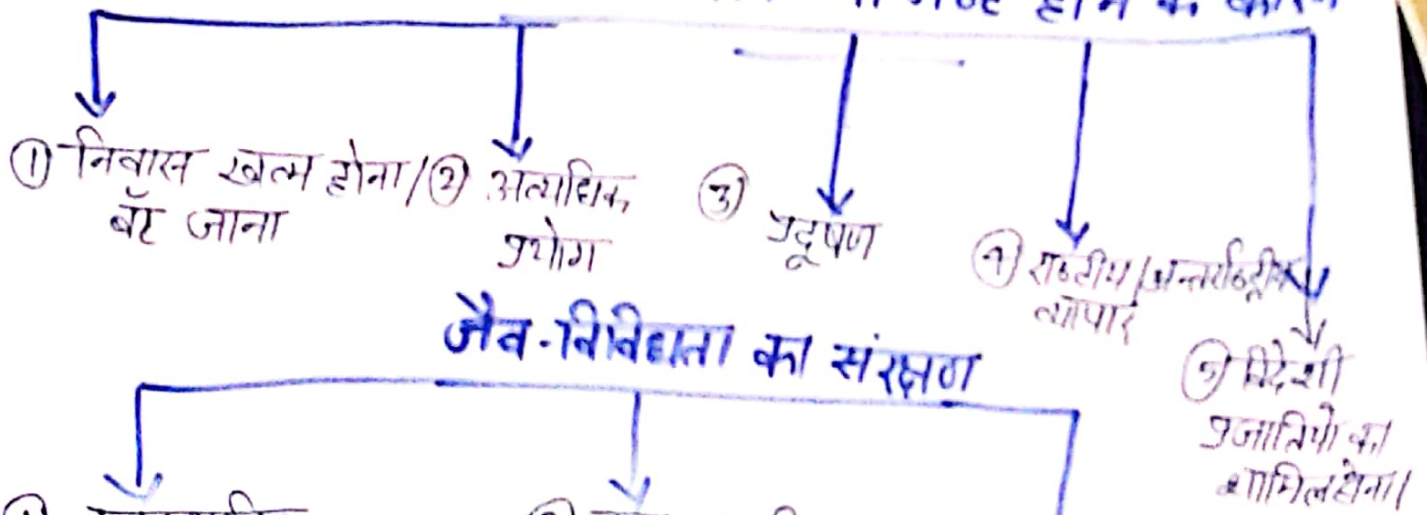 नष्ट होने के कारण
① निवास खत्म होना/
बँट जाना
② अत्याधिक
प्रयोग
③ प्रदूषण
④ राष्ट्रीय/अन्तर्राष्ट्रीय
व्यापार
⑤ विदेशी
प्रजातियो का
शामिल होना।
जैव-विविधता का संरक्षण